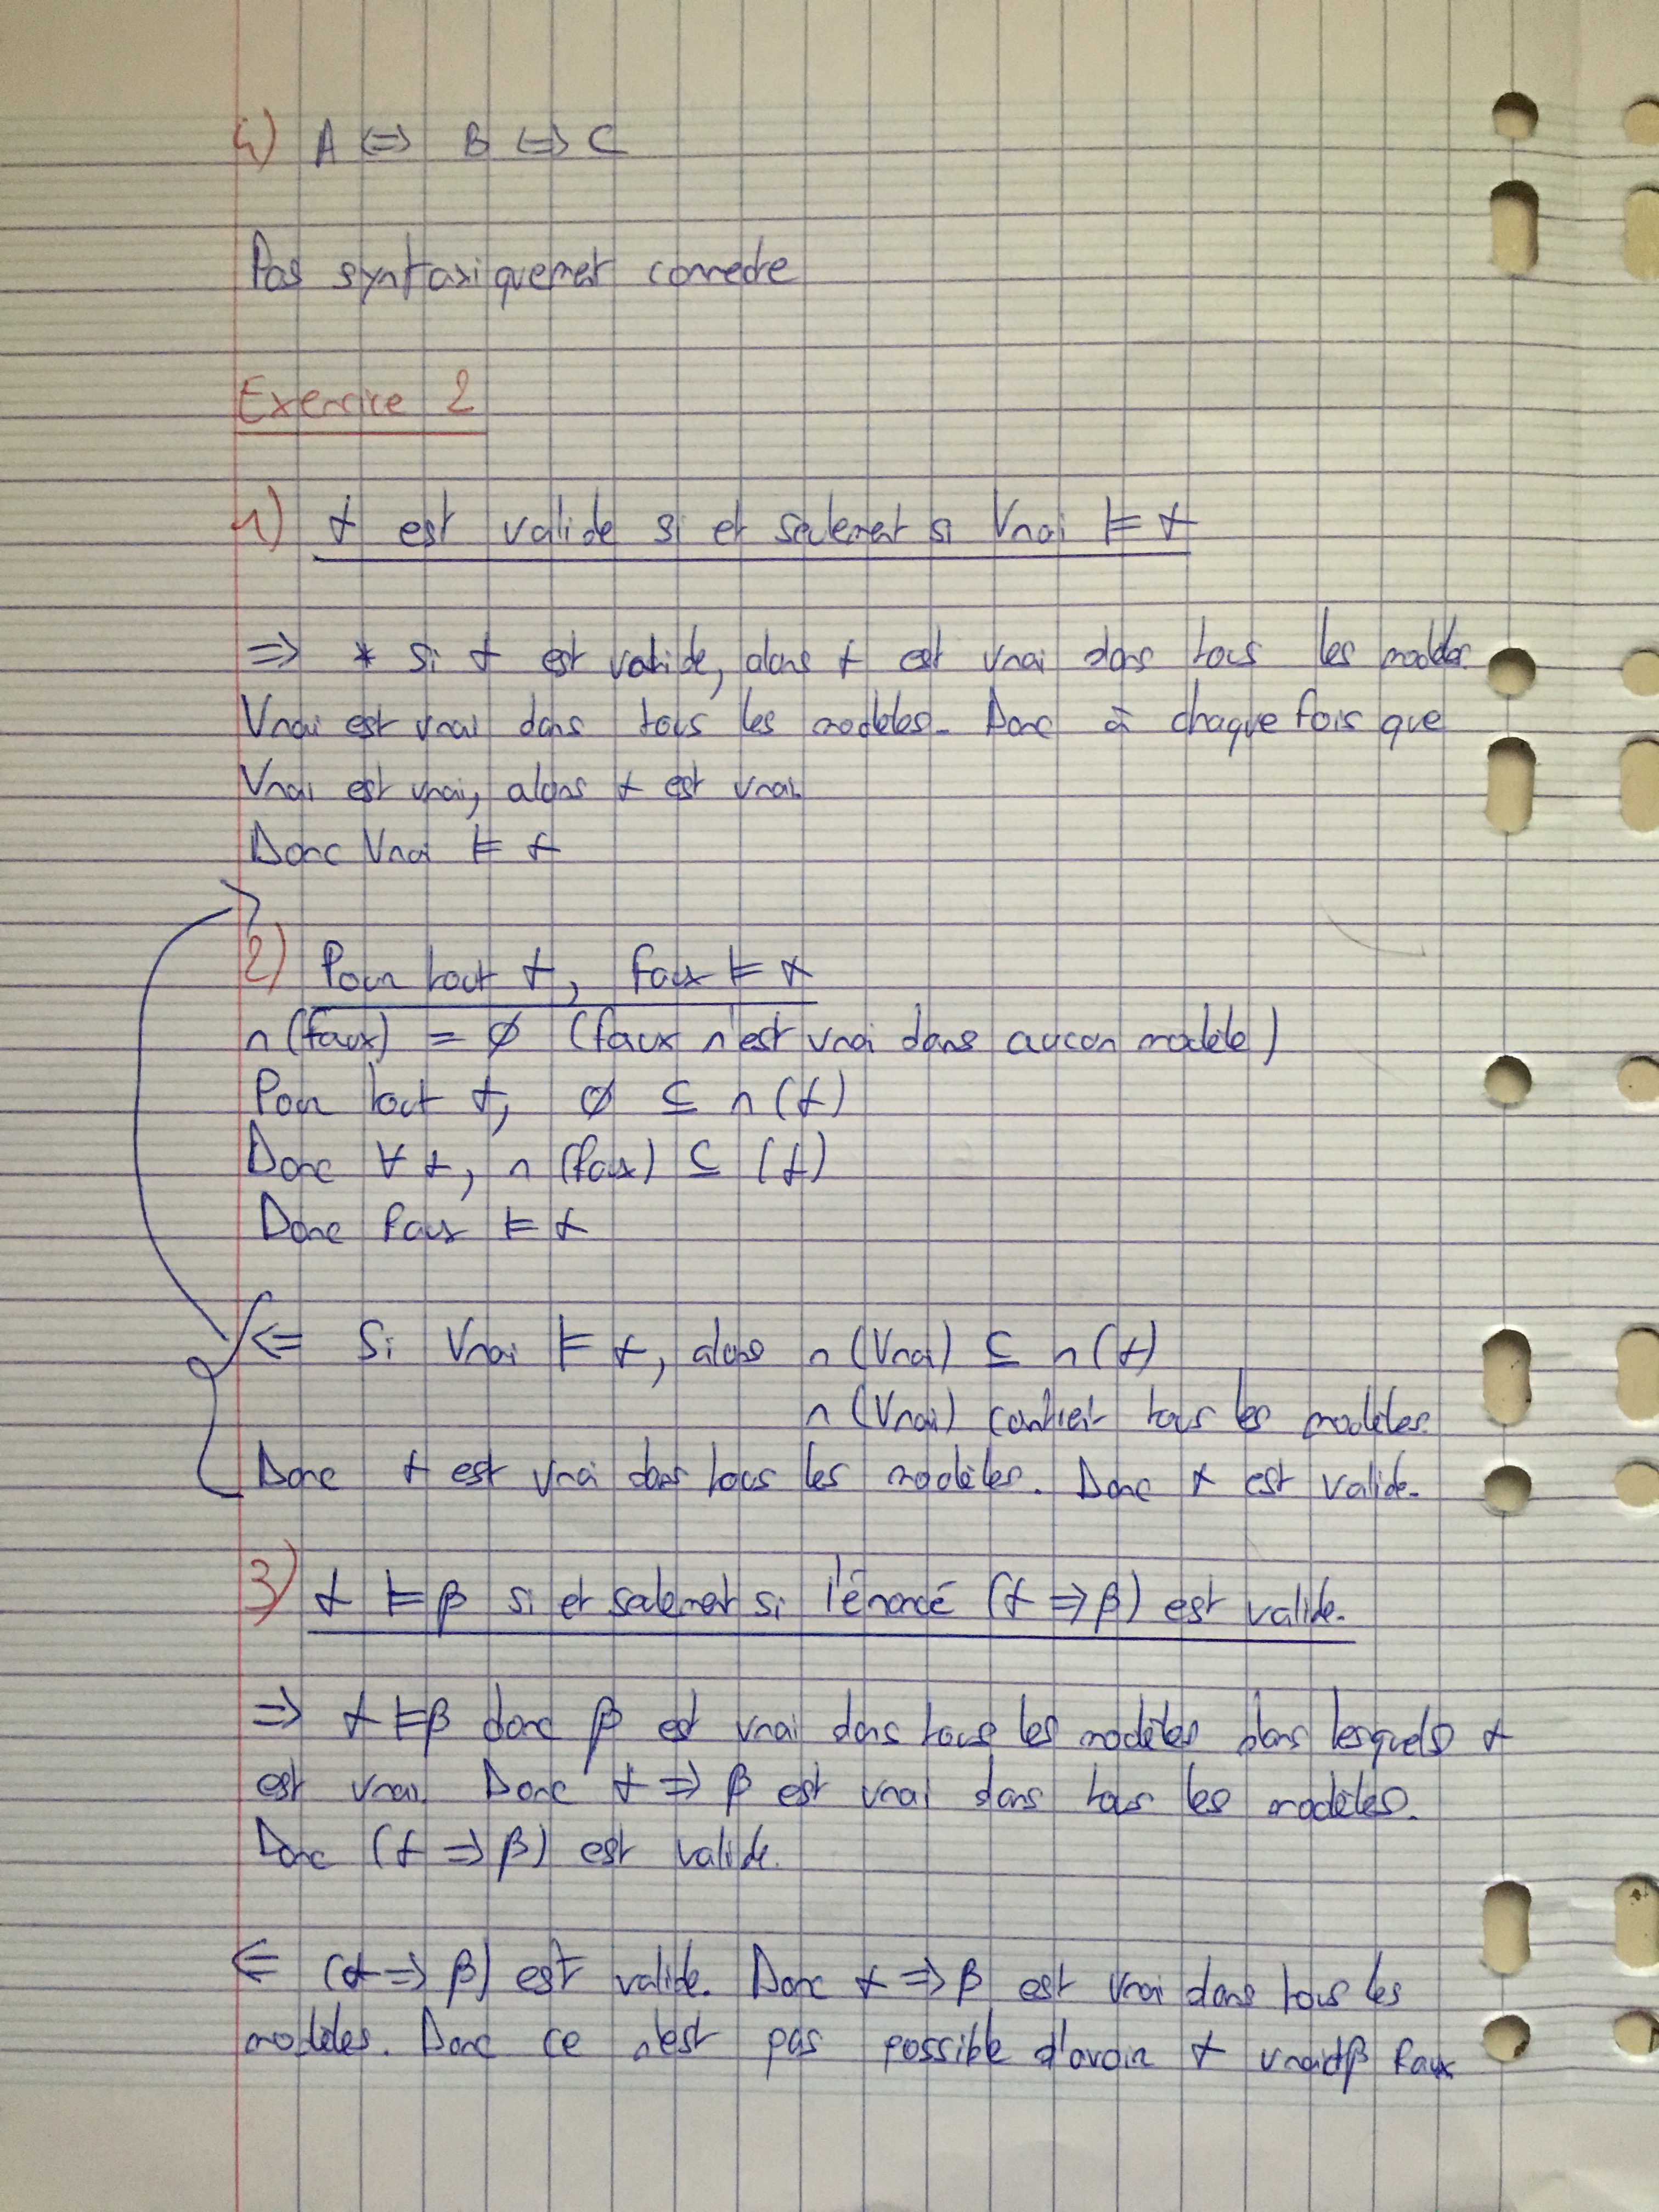 4) A <=> B <=> C
Pas syntaxiquement correcte
Exercice 2
1) α est valide si et seulement si Vrai ⊨ α
=> * Si α est valide, alors α est vrai dans tous les modèles.
Vrai est vrai dans tous les modèles. Donc à chaque fois que
Vrai est vrai, alors α est vrai.
Donc Vrai ⊨ α
2) Pour tout α, Faux ⊨ α
M(faux) = ∅ (faux n'est vrai dans aucun modèle)
Pour tout α, ∅ ⊆ M(α)
Donc ∀ α, M(faux) ⊆ (α)
Donc Faux ⊨ α
<= Si Vrai ⊨ α, alors M(Vrai) ⊆ M(α)
M(Vrai) contient tous les modèles.
Donc α est vrai dans tous les modèles. Donc α est valide.
3) α ⊨ β si et seulement si l'énoncé (α => β) est valide.
=> α ⊨ β donc β est vrai dans tous les modèles dans lesquels α
est vrai. Donc α => β est vrai dans tous les modèles.
Donc (α => β) est valide.
<= (α => β) est valide. Donc α => β est vrai dans tous les
modèles. Donc ce n'est pas possible d'avoir α vrai et β faux